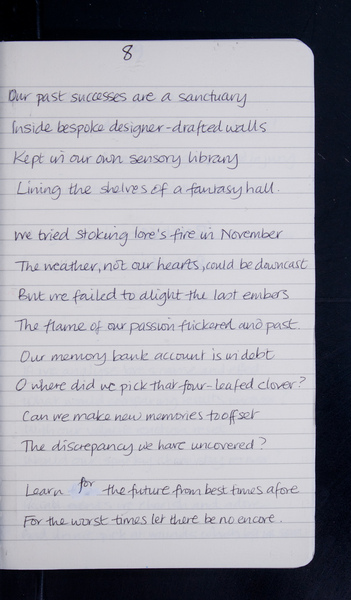 8
Our past successes are a sanctuary
Inside bespoke designer-drafted walls
Kept in our own sensory library
Lining the shelves of a fantasy hall.
We tried stoking love's fire in November
The weather, not our hearts, could be downcast
But we failed to alight the last embers
The flame of our passion flickered and past.
Our memory bank account is in debt
O where did we pick that four-leafed clover?
Can we make new memories to offset
The discrepancy we have uncovered?
Learn for the future from best times afore
For the worst times let there be no encore.